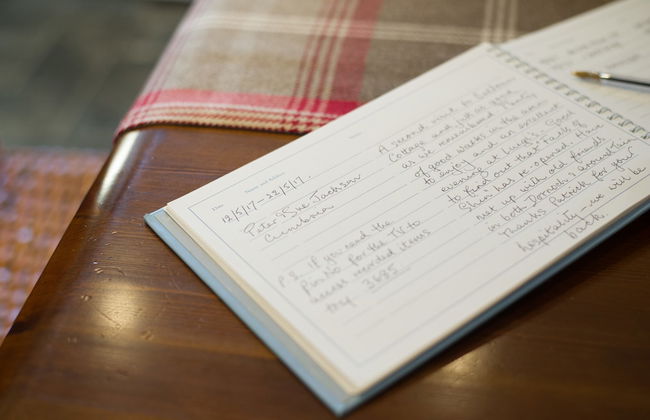 Name and Address
12/5/17 - 22/5/17.
Peter & Sue Jackson
Cumbria
P.S. If you need the
Pin No. for the TV to
access recorded items
try 3685
A second visit to
Cottage and just as good
as we remembered. Plenty
of good walks in the area
to enjoy and an excellent
evening at Luigi's. Good
to find out that
Shin has re-opened. Have
met up with old friends
in both Dornoch & around Tain
Thanks Patrick for your
hospitality, we will be
back.